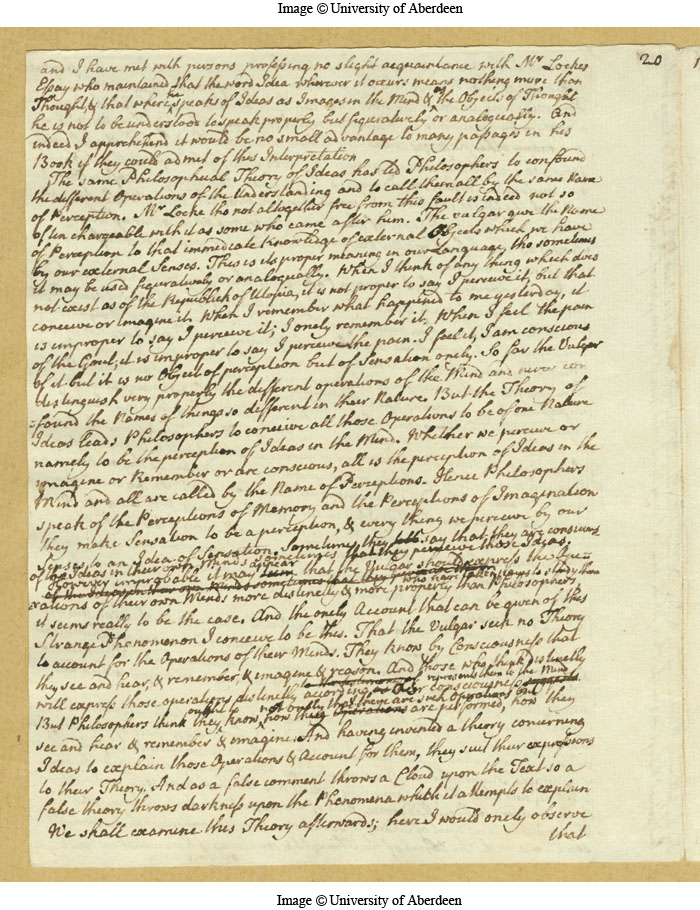 Image © University of Aberdeen
20
and I have met with persons professing no slight acquaintance with Mr Lockes
Essay who maintained that the word Idea wherever it occurs means nothing more than
Thought, & that where he speaks of Ideas as Images in the Mind & as the Objects of Thought
he is not to be understood to speak properly but figuratively or analogically. And
indeed I apprehend it would be no small advantage to many passages in his
Book if they could admit of this Interpretation
The same Philosophical Theory of Ideas has led Philosophers to confound
the different Operations of the Understanding and to call them all by the same Name
of Perception. Mr Locke tho not altogether free from this fault is indeed not so
often chargeable with it as some who came after him. The vulgar give the Name
of Perception to that immediate knowledge of external Objects which we have
by our external Senses. This is its proper meaning in our Language, tho sometimes
it may be used figuratively or analogically. When I think of any thing which does
not exist as of the Republick of Utopia, it is not proper to say I perceive it, but that
conceive or imagine it. When I remember what happened to me yesterday, it
is improper to say I perceive it; I onely remember it. When I feel the pain
of the Gout, it is improper to say I perceive the pain. I feel it, I am conscious
of it but it is no Object of perception but of Sensation onely. So far the Vulgar
distinguish very properly the different operations of the Mind and never con
=found the Names of things so different in their Nature. But the Theory of
Ideas leads Philosophers to conceive all those Operations to be of one Nature
namely to be the perception of Ideas in the Mind. Whether we perceive or
imagine or Remember or are conscious, all is the perception of Ideas in the
Mind and all are called by the Name of Perceptions. Hence Philosophers
speak of the Perceptions of Memory and the Perceptions of Imagination
they make Sensation to be a perception, & every thing we perceive by our
Senses to an Idea of Sensation. Sometimes they say that they are conscious
of the Ideas in their own Minds sometimes that they perceive those Ideas.
However improbable it may appear that the Vulgar should express the Ope=
who have taken pains to study them
rations of their own Minds more distinctly & more properly than Philosophers
it seems really to be the case. And the onely Account that can be given of this
Strange Phenomenon I conceive to be this. That the Vulgar seek no Theory
to account for the Operations of their Minds. They know by Consciousness that
they see and hear, & remember, & imagine & reason. And those who think distinctly
will express those operations distinctly according as consciousness represents them to the Mind
But Philosophers think they ought to know not onely that there are such Operations but how they are performed, how they
see and hear & remember & imagine. And having invented a theory concerning
Ideas to explain those Operations & Account for them, they suit their expressions
to their Theory. And as a false comment throws a Cloud upon the Text so a
false theory throws darkness upon the Phenomena which it attempts to explain
We shall examine this Theory afterwards; here I would onely observe
that
Image © University of Aberdeen